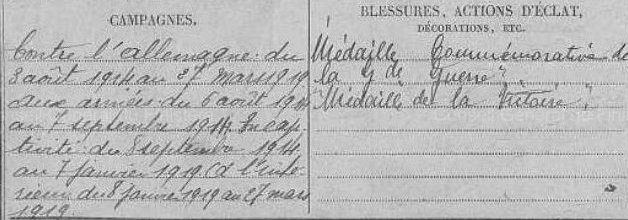 CAMPAGNES.
Contre l'allemagne : du
3 août 1914 au 27 mars 1919
aux armées du 6 août 1914
au 7 septembre 1914. En cap
tivité : du 8 septembre 1914
au 7 janvier 1919 (à l'inté
rieur du 8 janvier 1919 au 27 mars
1919.
BLESSURES, ACTIONS D'ÉCLAT,
DÉCORATIONS, ETC.
Médaille Commémorative de
la gde Guerre
"Médaille de la Victoire"